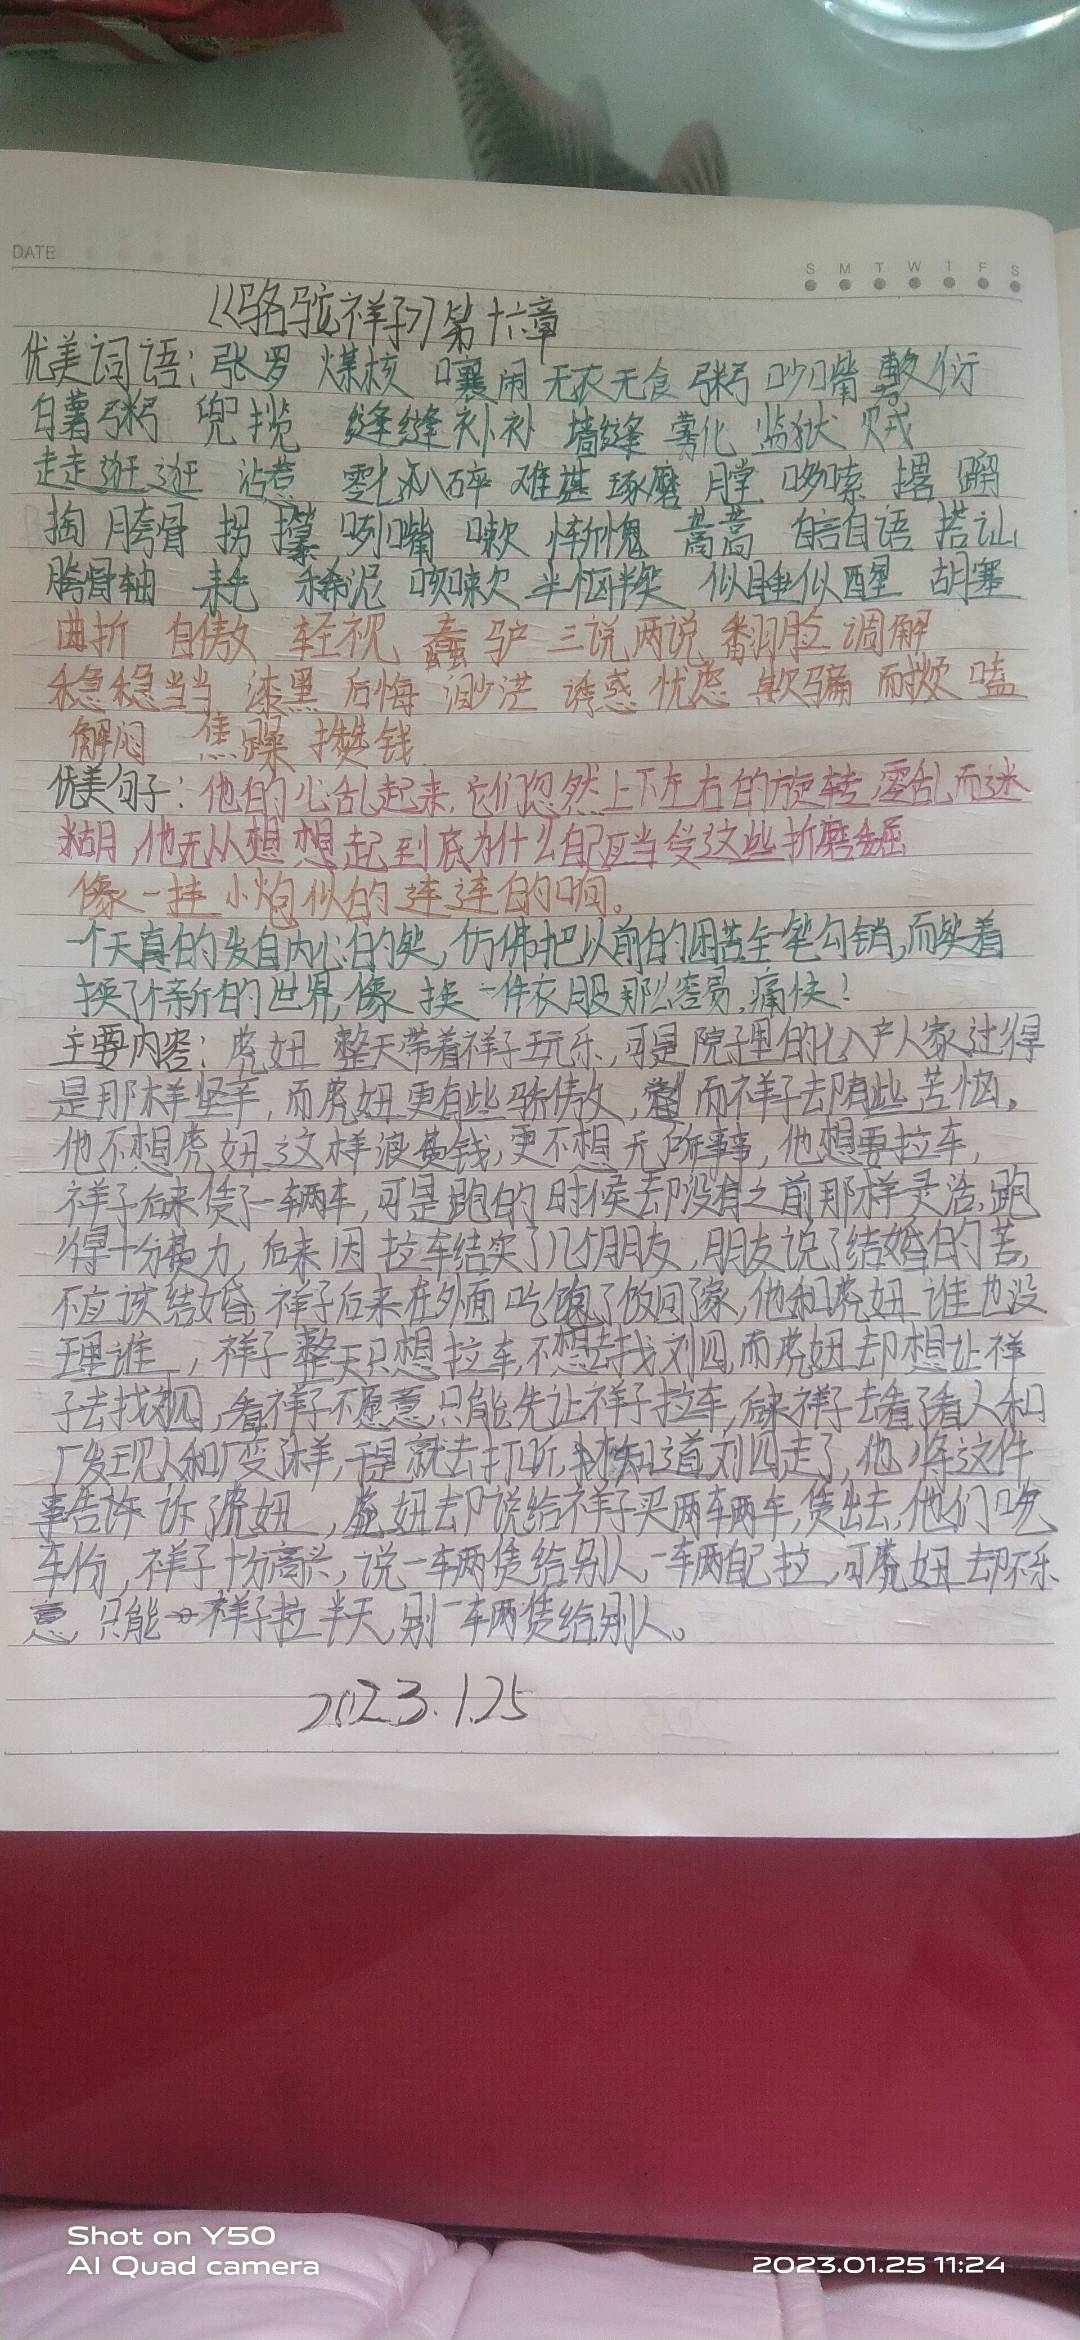 DATE
S M T W T F S
《骆驼祥子》第十六章
优美词语：张罗 煤核 嚷闹 无衣无食 粥 吵嘴 敷衍
白薯粥 兜揽 缝缝补补 墙缝 雾化 监狱 贼
走走逛逛 沾惹 零七八碎 难堪 琢磨 膛 哆嗦 撂
掏 胯骨 拐 咧嘴 嗽 惭愧 自言自语 搭讪
胯骨轴 耗 稀泥 咳嗽 半恼半笑 似睡似醒 胡塞
曲折 自傲 轻视 蠢驴 三说两说 翻脸 调解
稳稳当当 漆黑 后悔 渺茫 诱惑 忧虑 欺骗 嗑
解闷 焦躁 攒钱
优美句子：他的心乱起来，它们忽然上下左右的旋转，零乱而迷
糊，他无从想想起到底为什么自己应当受这些折磨
像一挂小炮似的连连的响。
一个天真的发自内心的笑，仿佛把以前的困苦全一笔勾销，而笑着
换了个新的世界，像换一件衣服那么容易，痛快！
主要内容：虎妞 整天带着祥子玩乐，可是院子里的七八户人家过得
是那样坚辛，而虎妞更有些骄傲，而祥子去却有些苦恼。
他不想虎妞这样浪费钱，更不想无所事事，他想要拉车，
祥子后来赁了一辆车，可是跑的时候却没有之前那样灵活，跑
得十分费力，后来因拉车结实了几个朋友，朋友说了结婚的苦，
不应该结婚，祥子后来在外面吃饱了饭回了家，他和虎妞谁也没
理谁，祥子整天只想拉车，不想去找刘四，而虎妞却想让祥
子去找刘四，看祥子不愿意，只能先让祥子拉车，后来祥子去看了看人和
厂发现人和厂变了样，于是就去打听，才知道刘四走了，他将这件
事告诉诉了虎妞，虎妞却说给祥子买两车两车，赁出去，他们吃
车份，祥子十分高兴，说一车两赁给别人，一车两自己拉，可虎妞却不乐
意，只能 祥子拉半天，别一车两赁给别人。
2023.1.25
Shot on Y50
AI Quad camera
2023.01.25 11:24